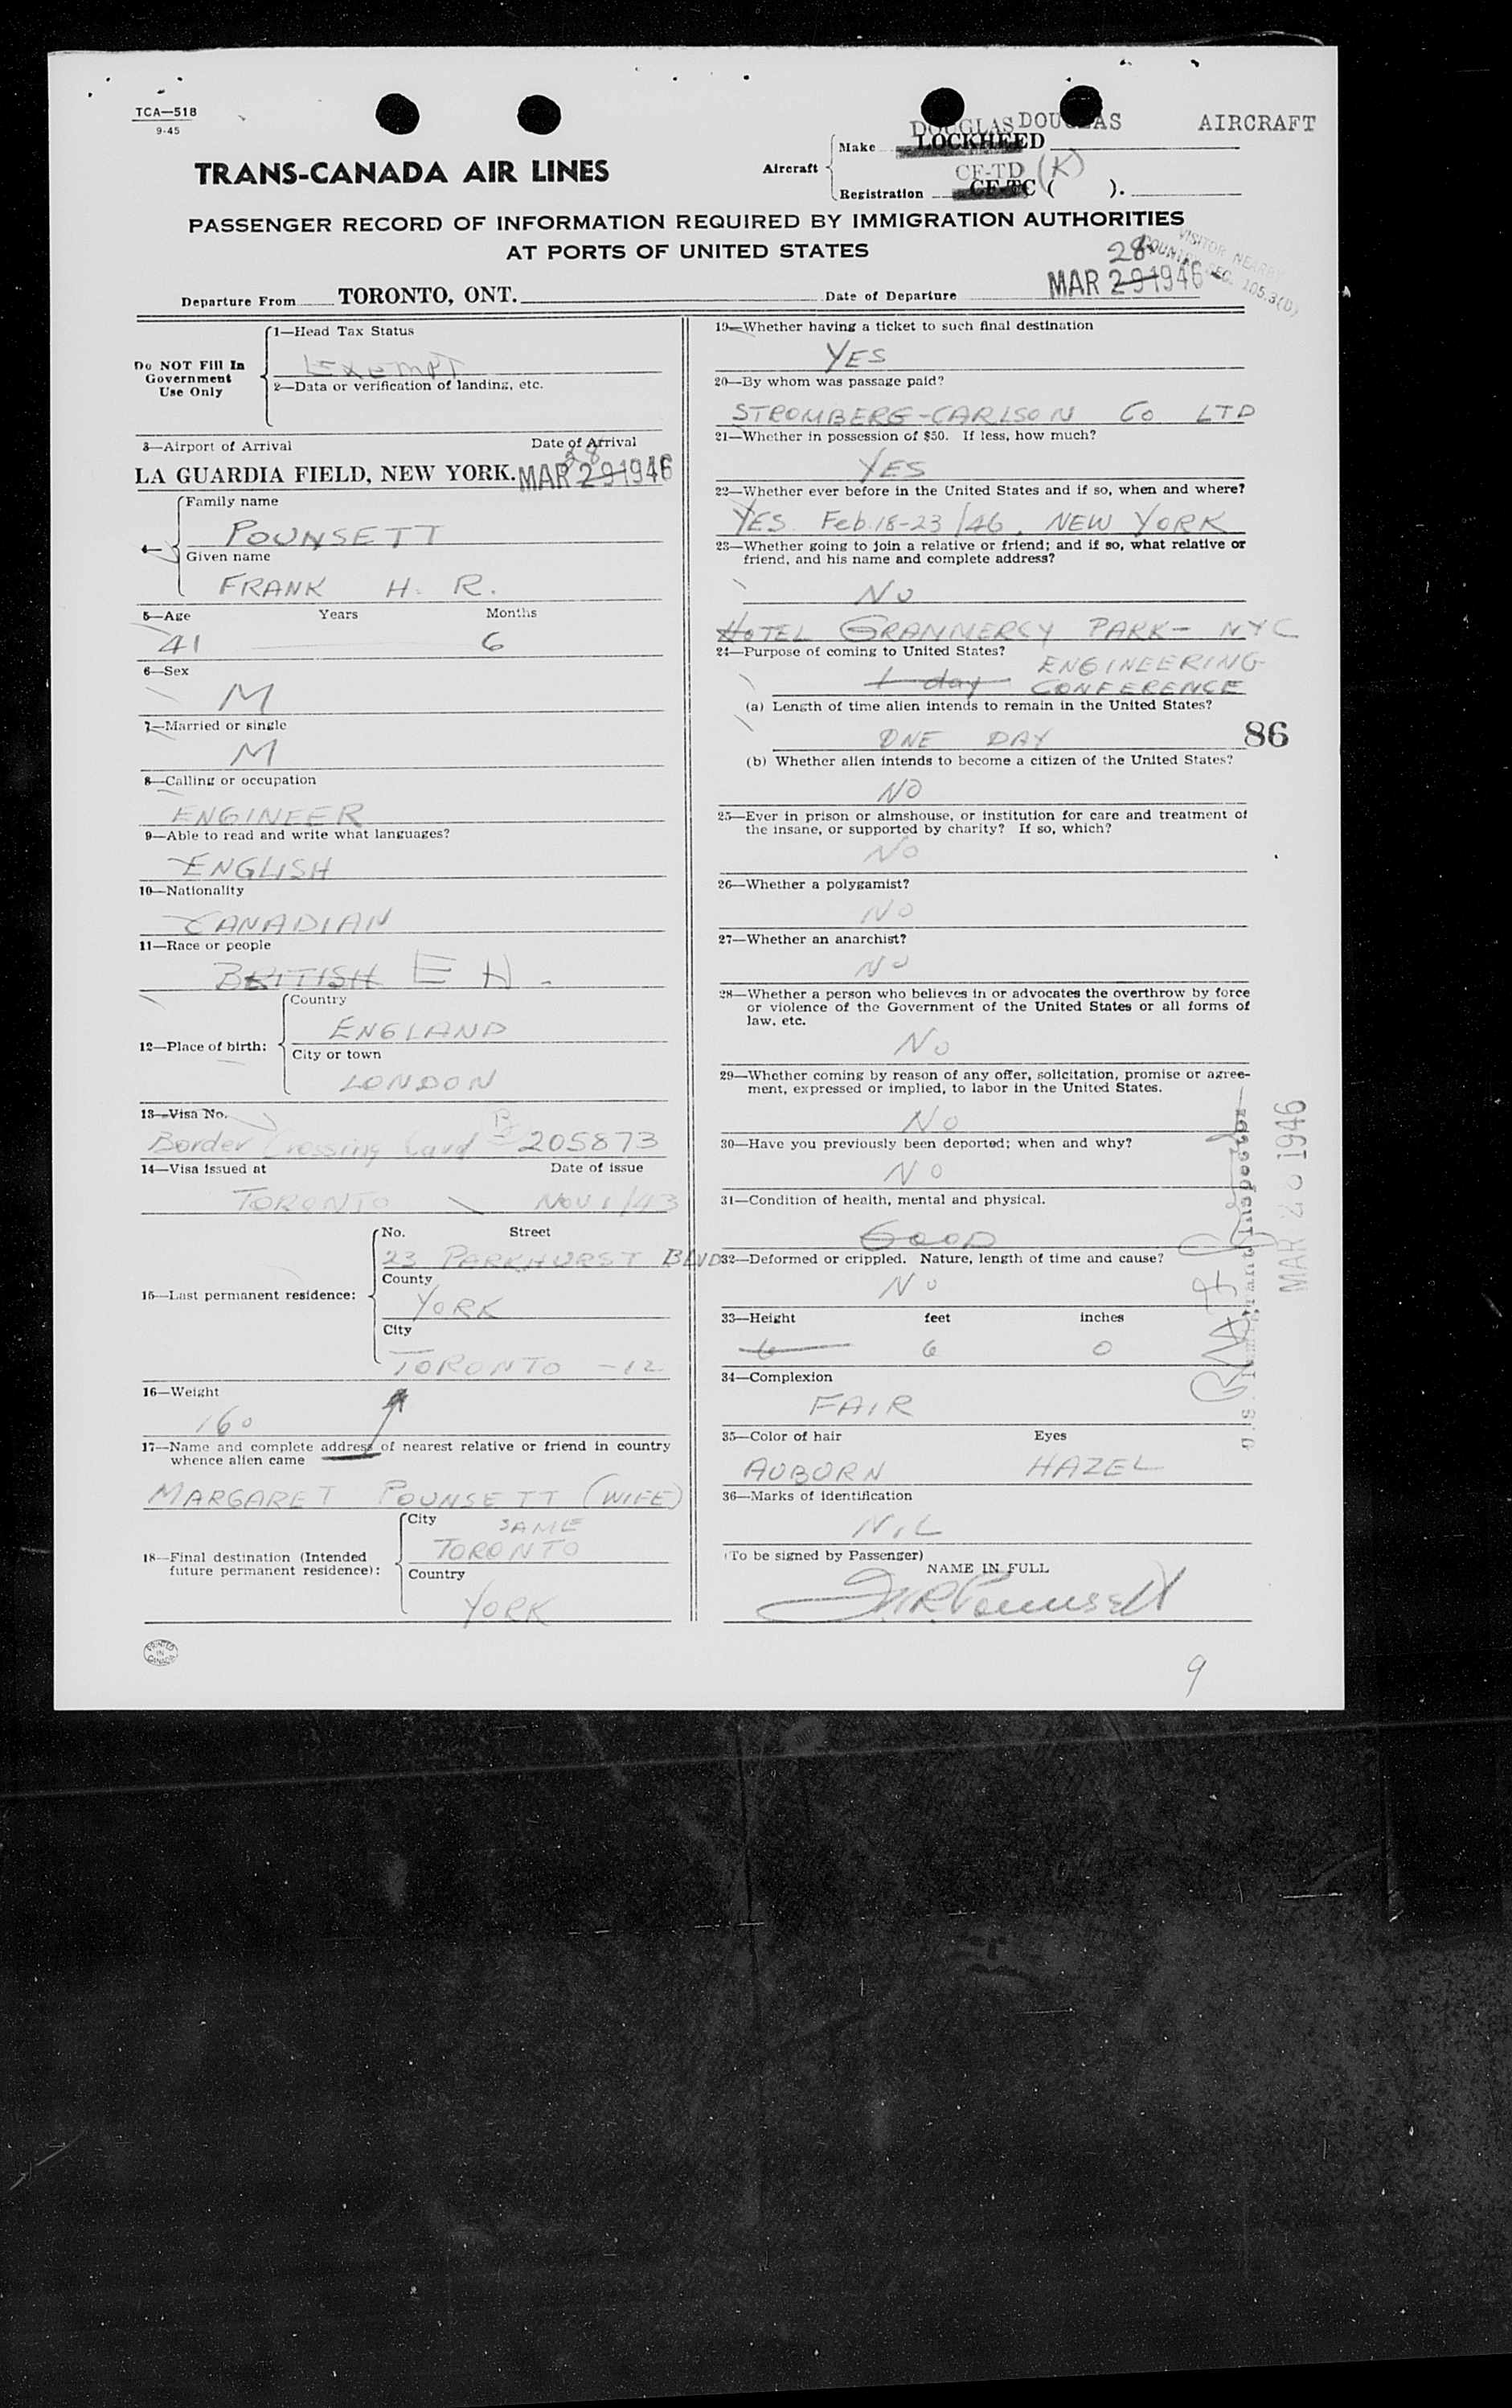 TCA—518
9-45
TRANS-CANADA AIR LINES
Aircraft
Make
DOUGLAS DOUGLAS AIRCRAFT
LOCKHEED
CF-TD (K)
Registration CF-TC ( ).
PASSENGER RECORD OF INFORMATION REQUIRED BY IMMIGRATION AUTHORITIES
AT PORTS OF UNITED STATES
VISITOR NEARBY
COUNTRY SEC. 105.3(D)
28
Departure From TORONTO, ONT. Date of Departure MAR 29 1946
Do NOT Fill In
Government
Use Only
1—Head Tax Status
Exempt
2—Data or verification of landing, etc.
3—Airport of Arrival Date of Arrival
28
LA GUARDIA FIELD, NEW YORK. MAR 29 1946
4—
Family name
POUNSETT
Given name
FRANK H. R.
5—Age Years Months
41 6
6—Sex
M
7—Married or single
M
8—Calling or occupation
ENGINEER
9—Able to read and write what languages?
ENGLISH
10—Nationality
CANADIAN
11—Race or people
BRITISH E H -
12—Place of birth:
Country
ENGLAND
City or town
LONDON
13—Visa No.
Border Crossing Card B 205873
14—Visa issued at Date of issue
TORONTO NOV 1/43
15—Last permanent residence:
No. Street
23 PARKHURST BLVD
County
YORK
City
TORONTO -12
16—Weight
160
17—Name and complete address of nearest relative or friend in country
whence alien came
MARGARET POUNSETT (WIFE)
18—Final destination (Intended
future permanent residence):
City SAME
TORONTO
Country
YORK
PRINTED
IN
CANADA
19—Whether having a ticket to such final destination
YES
20—By whom was passage paid?
STROMBERG-CARLSON Co LTD
21—Whether in possession of $50. If less, how much?
YES
22—Whether ever before in the United States and if so, when and where?
YES. Feb. 18-23/46, NEW YORK
23—Whether going to join a relative or friend; and if so, what relative or
friend, and his name and complete address?
No
HOTEL GRAMMERCY PARK - NYC
24—Purpose of coming to United States?
ENGINEERING
1 day CONFERENCE
(a) Length of time alien intends to remain in the United States?
ONE DAY
86
(b) Whether alien intends to become a citizen of the United States?
NO
25—Ever in prison or almshouse, or institution for care and treatment of
the insane, or supported by charity? If so, which?
No
26—Whether a polygamist?
NO
27—Whether an anarchist?
NO
28—Whether a person who believes in or advocates the overthrow by force
or violence of the Government of the United States or all forms of
law, etc.
No
29—Whether coming by reason of any offer, solicitation, promise or agree-
ment, expressed or implied, to labor in the United States.
No
30—Have you previously been deported; when and why?
NO
31—Condition of health, mental and physical.
GOOD
32—Deformed or crippled. Nature, length of time and cause?
No
33—Height feet inches
6 6 0
34—Complexion
FAIR
35—Color of hair Eyes
AUBURN HAZEL
36—Marks of identification
NIL
(To be signed by Passenger)
NAME IN FULL
F.H.R. Pounsett
U.S. Immigrant Inspector
MAR 28 1946
9